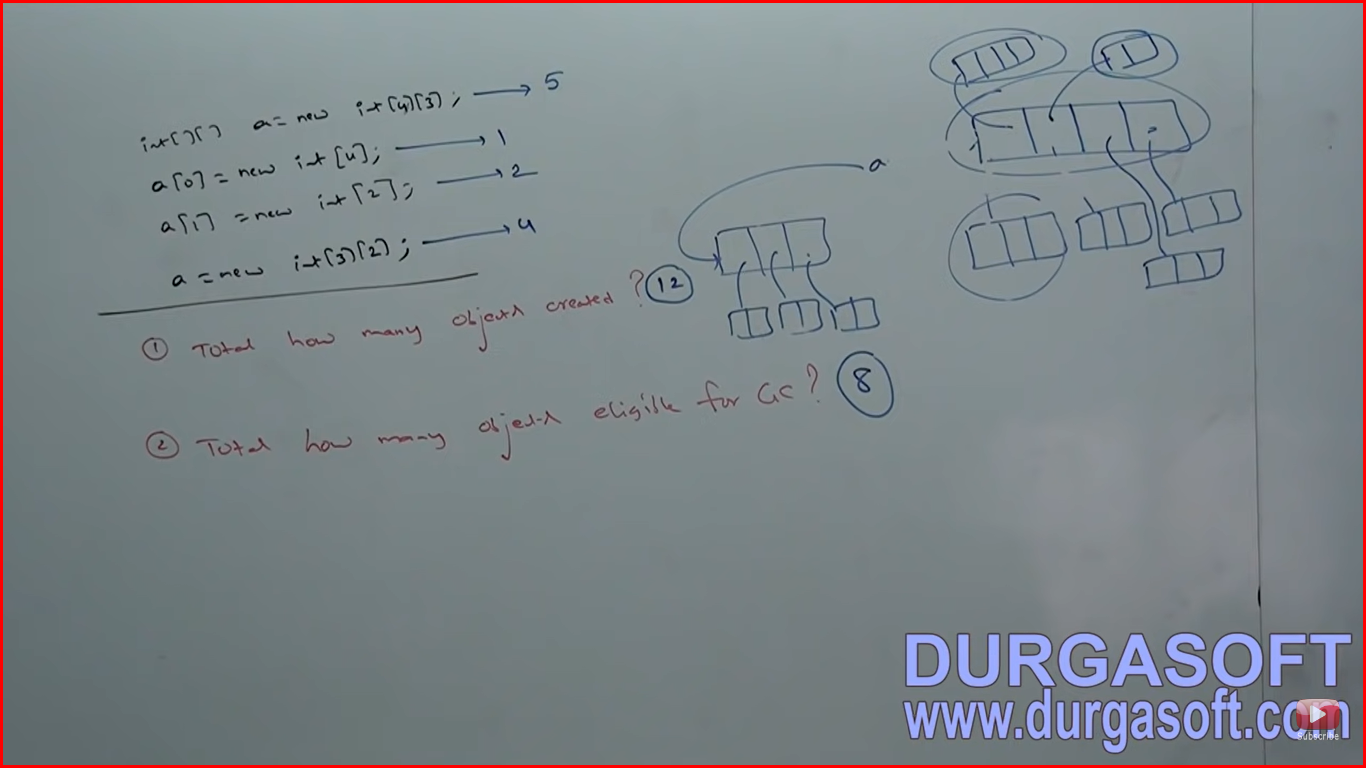 int[][] a = new int[4][3]; → 5
a[0] = new int[4]; → 1
a[1] = new int[2]; → 2
a = new int[3][2]; → 4
a
① Total how many objects created? 12
② Total how many objects eligible for GC? 8
DURGASOFT
www.durgasoft.com
Subscribe